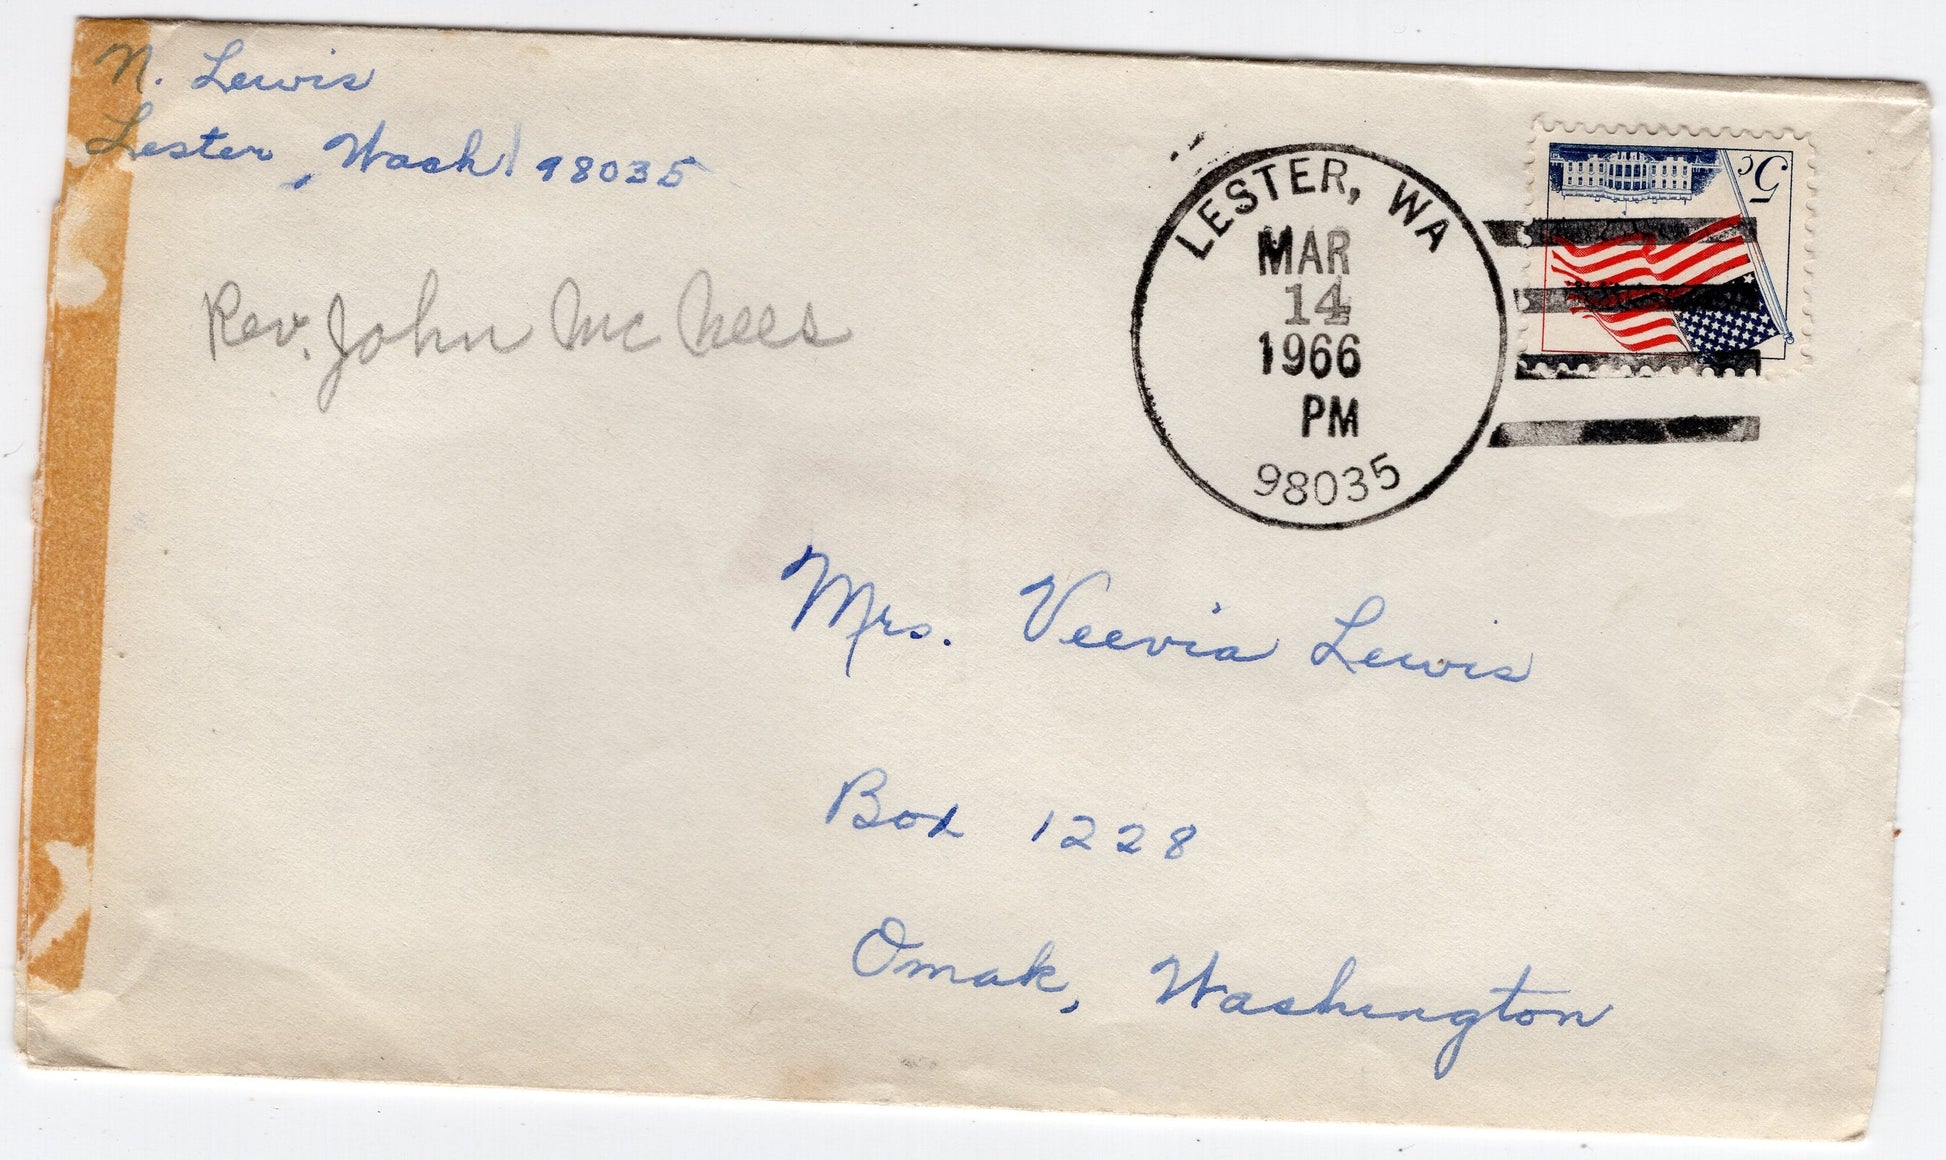 N. Lewis
Lester, Wash. 98035
Rev. John McNees
LESTER, WA
MAR
14
1966
PM
98035
5c
Mrs. Veevia Lewis
Box 1228
Omak, Washington